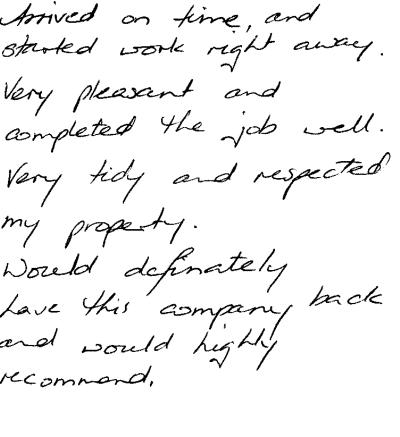 Arrived on time, and
started work right away.
Very pleasant and
completed the job well.
Very tidy and respected
my property.
Would definately
have this company back
and would highly
recommend.